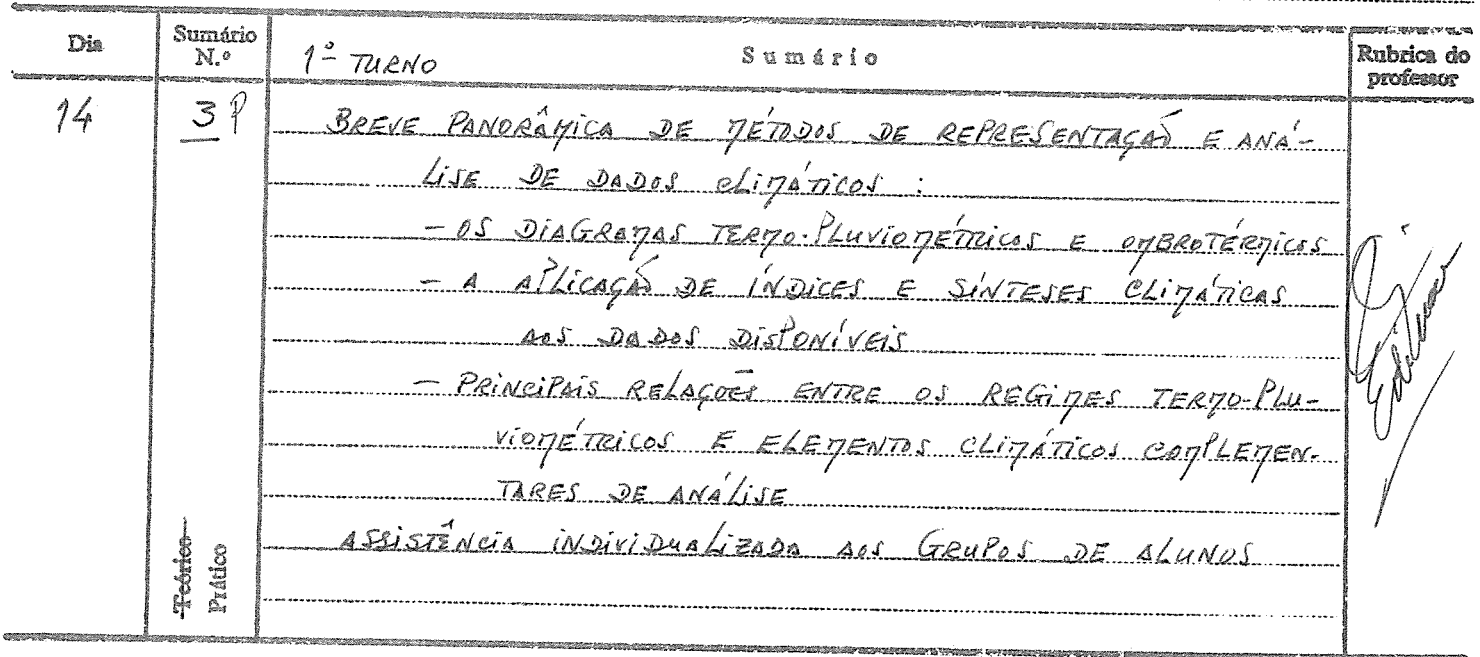 Dia Sumário N.º 1º TURNO Sumário Rubrica do professor
14 3 P BREVE PANORÂMICA DE MÉTODOS DE REPRESENTAÇÃO E ANÁ-
LISE DE DADOS CLIMÁTICOS :
- OS DIAGRAMAS TERMO-PLUVIOMÉTRICOS E OMBROTÉRMICOS
- A APLICAÇÃO DE ÍNDICES E SÍNTESES CLIMÁTICAS
AOS DADOS DISPONÍVEIS
- PRINCIPAIS RELAÇÕES ENTRE OS REGIMES TERMO-PLU-
VIOMÉTRICOS E ELEMENTOS CLIMÁTICOS COMPLEMEN-
TARES DE ANÁLISE
ASSISTÊNCIA INDIVIDUALIZADA AOS GRUPOS DE ALUNOS
Teórico
Prático